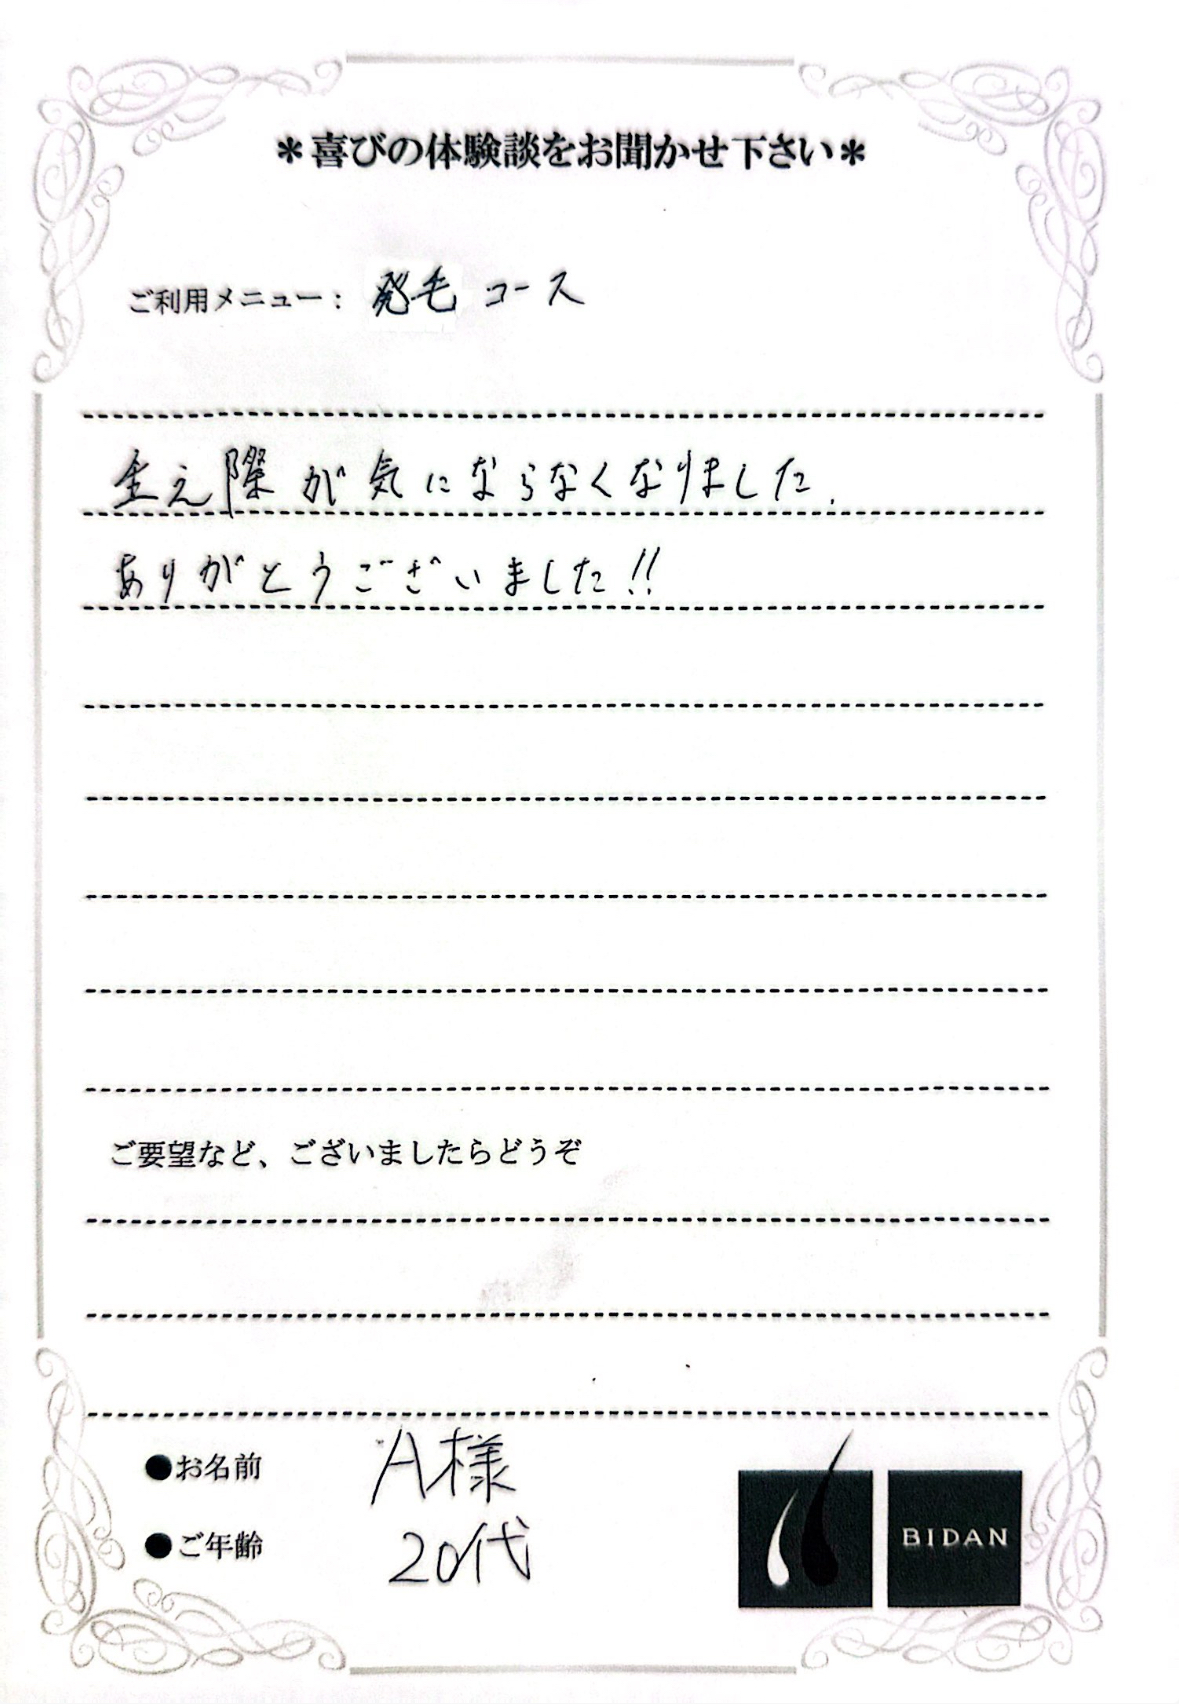 ＊喜びの体験談をお聞かせ下さい＊
ご利用メニュー： 発毛コース
生え際が気にならなくなりました.
ありがとうございました!!
ご要望など、ございましたらどうぞ
●お名前 A様
●ご年齢 20代
BIDAN